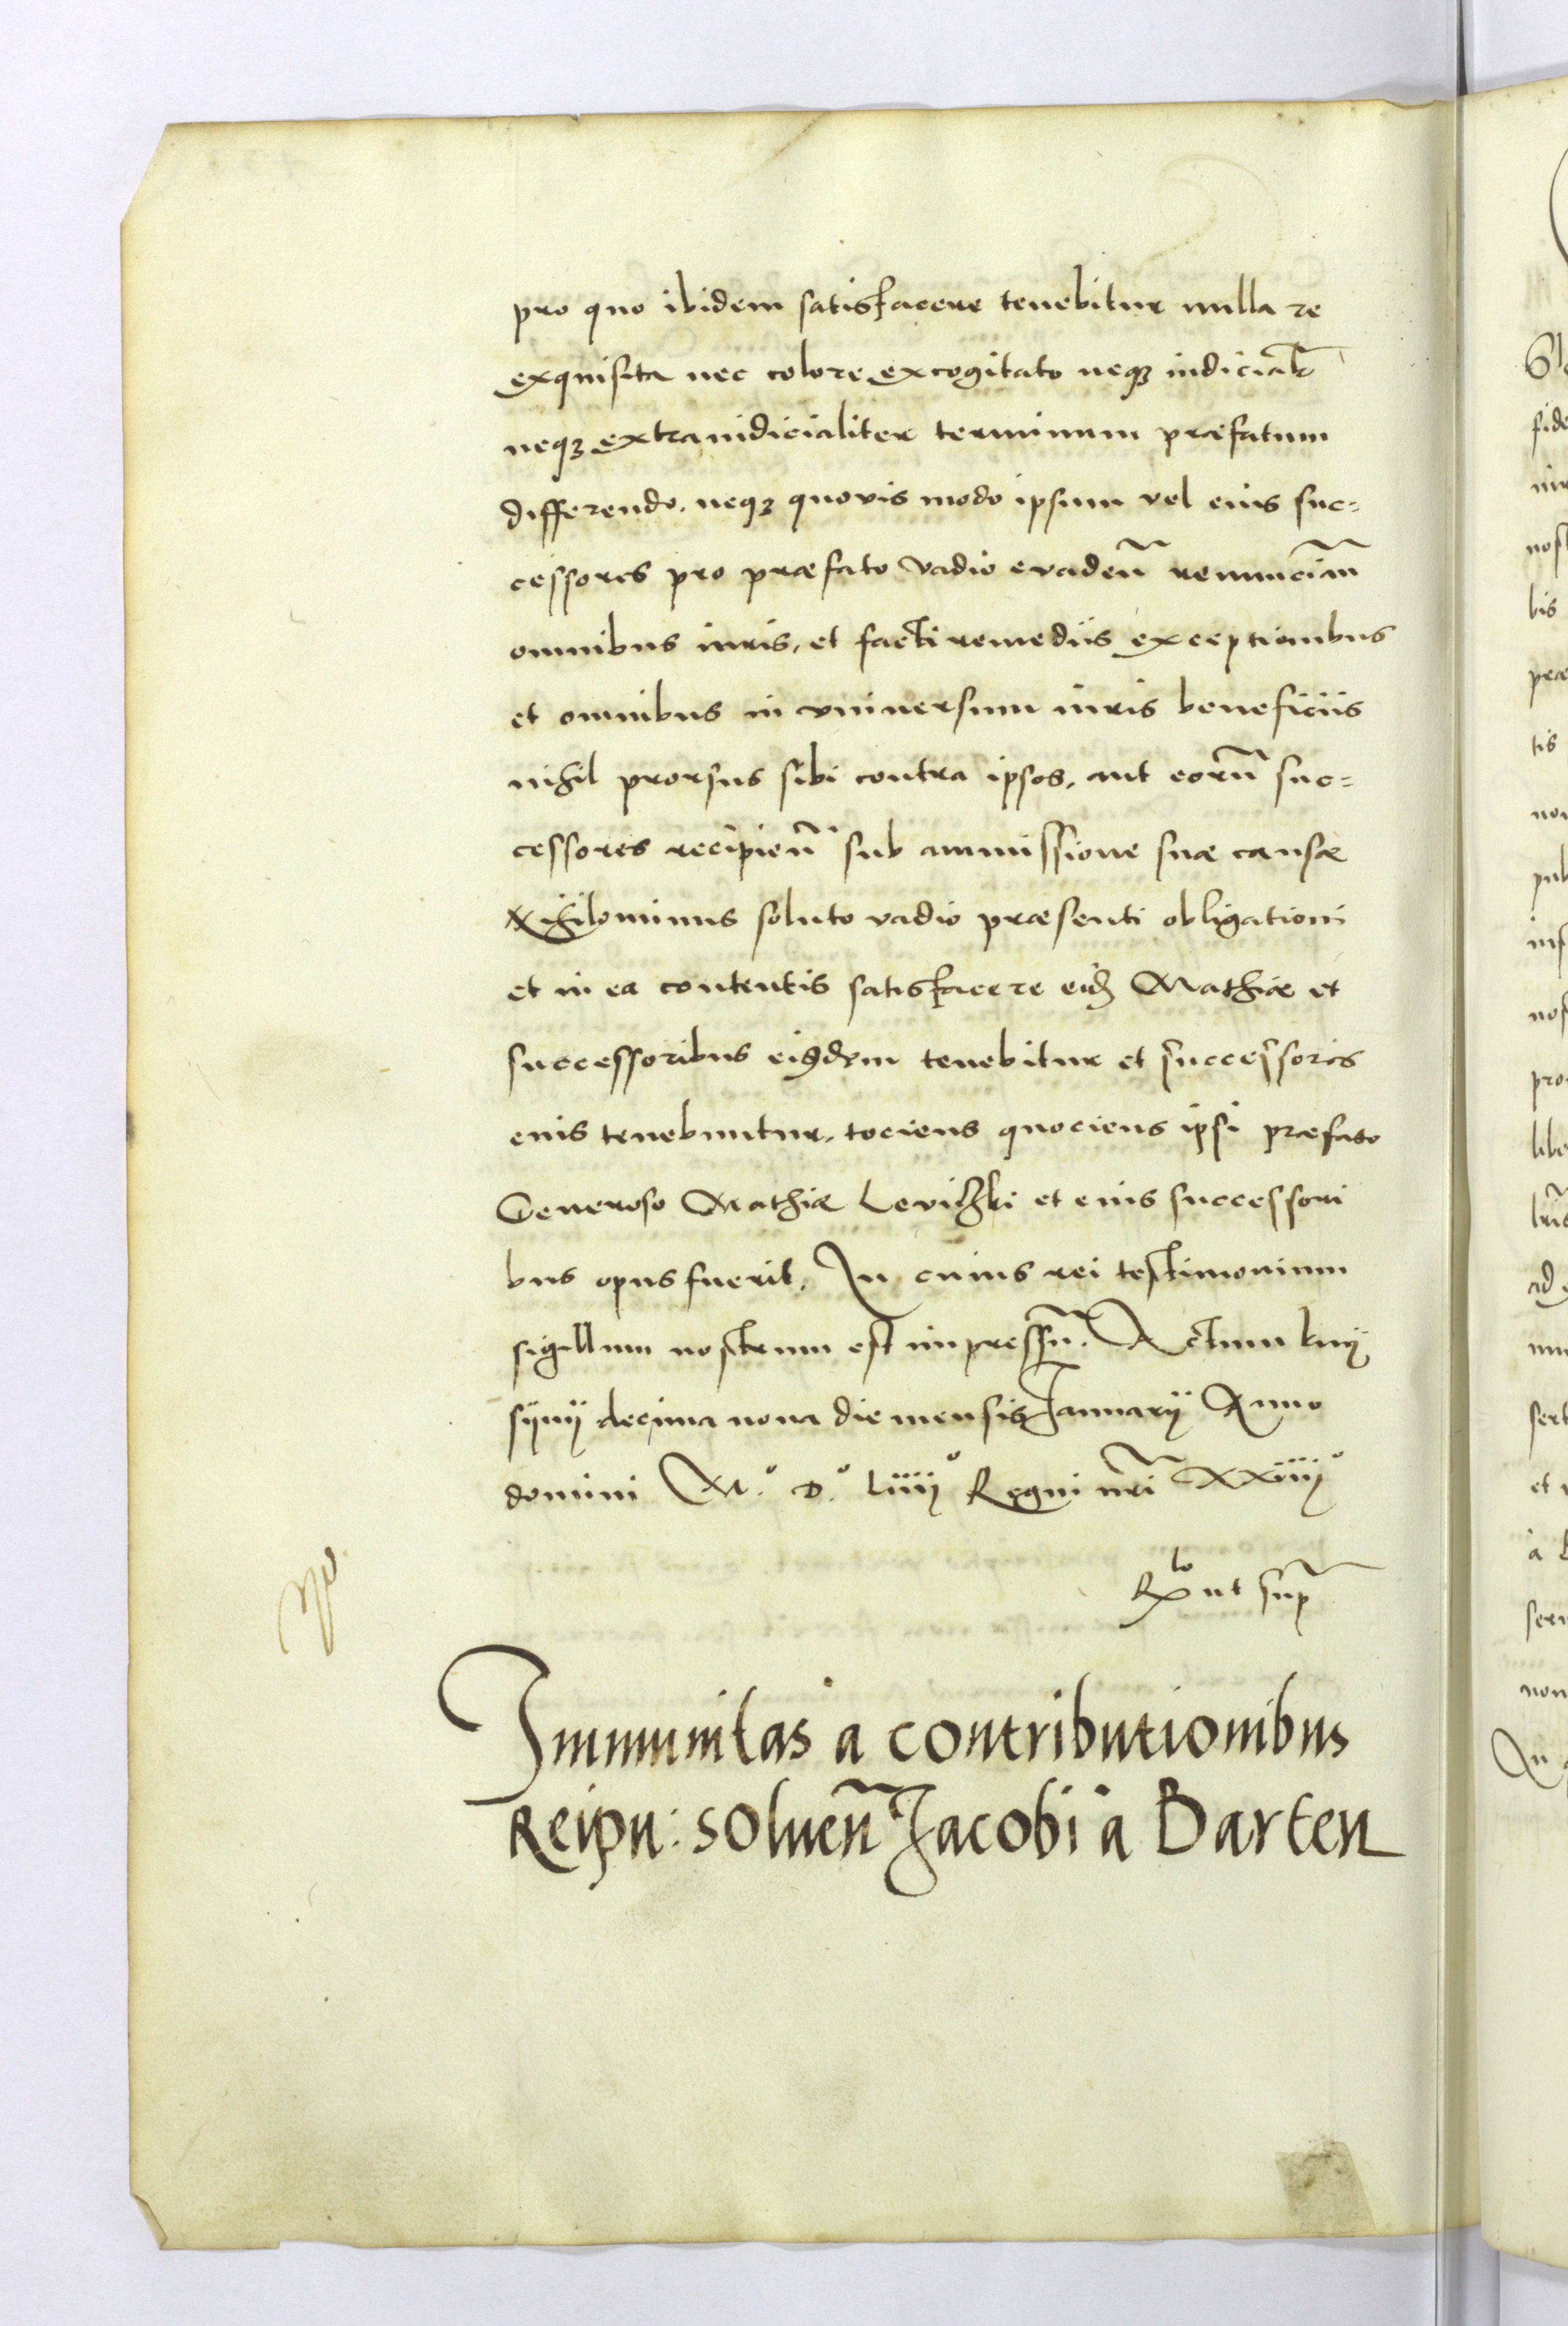 pro quo ibidem satisfacere tenebitur nulla re
exquisita nec colore excogitato neqꝫ iudicialr̃
neqꝫ extraiudicialiter terminum præfatum
differendo. neqꝫ quovis modo ipsum vel eius suc=
cessores pro præfato vadio evadeñ renunciañ
omnibus iuris, et facti remediis exceptionibus
et omnibus in vniuersum iuris beneficiis
nihil prorsus sibi contra ipsos, aut eorũ suc=
cessores recipieñ sub ammissione suæ causæ
Nihilominus soluto vadio præsenti obligationi
et in ea contentis satisfacere eid Mathiæ et
successoribus eiusdem tenebitur et successores
eius tenebuntur, tociens quociens ipsi præfato
Generoso Mathiæ Leviczki et eius successori
bus opus fuerit. In cuius rei testimonium
sigillum nostrum est impressũ. Actum kny
synij decima nona die mensis Januarij Anno
domini M.º D.º Liiijº Regni nr̃i XXiiijº
Rlo ut sup
Immunitas a contributionibus
Reipu: solueñ Jacobi a Barten